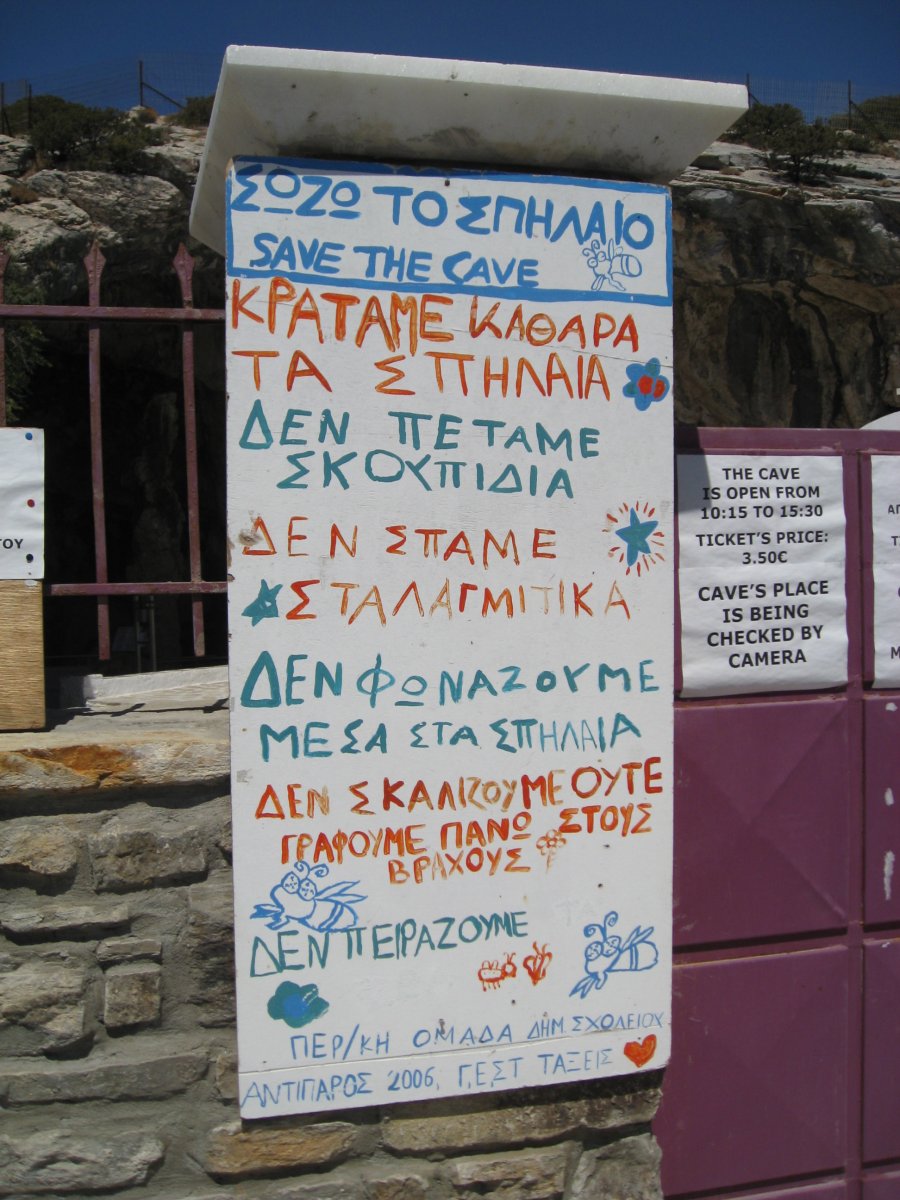 ΣΩΖΩ ΤΟ ΣΠΗΛΑΙΟ
SAVE THE CAVE
ΚΡΑΤΑΜΕ ΚΑΘΑΡΑ
ΤΑ ΣΠΗΛΑΙΑ
ΔΕΝ ΠΕΤΑΜΕ
ΣΚΟΥΠΙΔΙΑ
ΔΕΝ ΣΠΑΜΕ
ΣΤΑΛΑΓΜΙΤΙΚΑ
ΔΕΝ ΦΩΝΑΖΟΥΜΕ
ΜΕΣΑ ΣΤΑ ΣΠΗΛΑΙΑ
ΔΕΝ ΣΚΑΛΙΖΟΥΜΕ ΟΥΤΕ
ΓΡΑΦΟΥΜΕ ΠΑΝΩ ΣΤΟΥΣ
ΒΡΑΧΟΥΣ
ΔΕΝ ΠΕΙΡΑΖΟΥΜΕ
ΠΕΡ/ΚΗ ΟΜΑΔΑ ΔΗΜ. ΣΧΟΛΕΙΟΥ
ΑΝΤΙΠΑΡΟΣ 2006, Γ,Ε,ΣΤ ΤΑΞΕΙΣ
THE CAVE
IS OPEN FROM
10:15 TO 15:30
TICKET'S PRICE:
3.50€
CAVE'S PLACE
IS BEING
CHECKED BY
CAMERA
ΤΟΥ